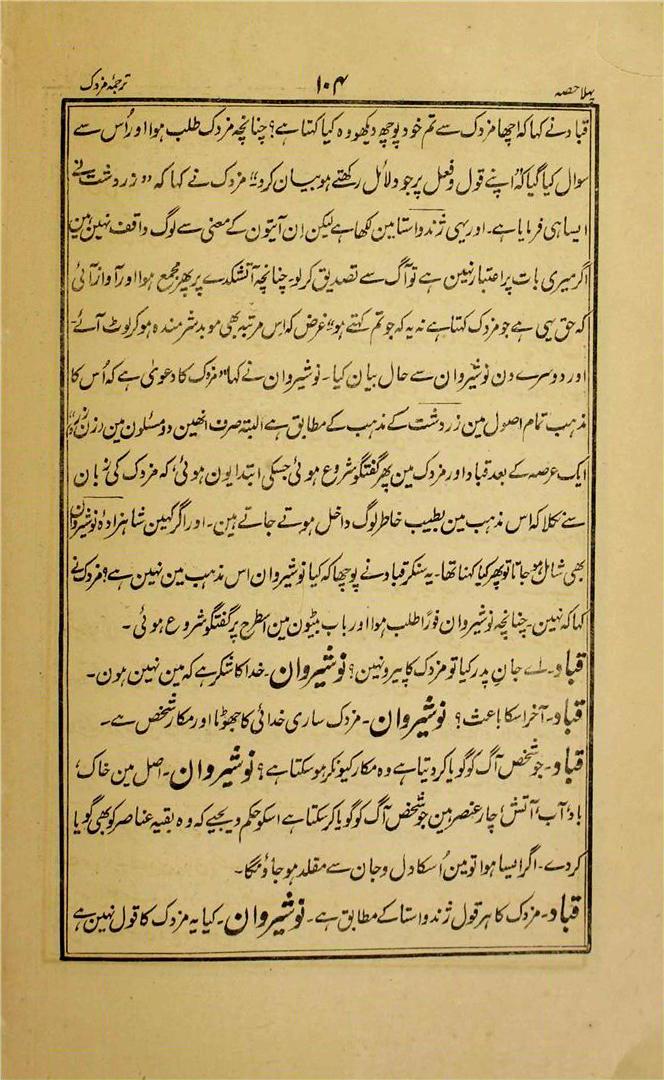 پہلا حصہ ۱۰۴ ترجمۂ مزدک
قباد نے کہا کہ اچھا مزدک سے تم خود پوچھ دیکھو وہ کیا کہتا ہے؟ چنانچہ مزدک طلب ہوا اور اُس سے
سوال کیا گیا کہ "اپنے قول و فعل پر جو دلائل رکھتے ہو بیان کرو" مزدک نے کہا کہ "زردشت نے
ایسا ہی فرمایا ہے۔ اور یہی ژند واستا مین لکھا ہے لیکن اِن آیتون کے معنی سے لوگ واقف نہین ہین
اگر میری بات پر اعتبار نہین ہے تو آگ سے تصدیق کر لو۔ چنانچہ آتشکدے پر پھر مجمع ہوا اور آواز آئی
کہ حق یہی ہے جو مزدک کہتا ہے نہ یہ کہ جو تم کہتے ہو" غرض کہ اِس مرتبہ بھی موبد شرمندہ ہو کر لوٹ آئے
اور دوسرے دن نوشیروان سے حال بیان کیا۔ نوشیروان نے کہا "مزدک کا دعویٰ ہے کہ اُس کا
مذہب تمام اصول مین زردشت کے مذہب کے مطابق ہے البتہ صرف انھین دو مسئلون مین (زن و زر)"
ایک عرصہ کے بعد قباد اور مزدک مین پھر گفتگو شروع ہوئی جسکی ابتدا یون ہوئی، کہ مزدک کی زبان
سے نکلا کہ اس مذہب مین بطیب خاطر لوگ داخل ہوتے جاتے ہین۔ اور اگر کہین شاہزادہ نوشیروان
بھی شامل ہو جاتا تو پھر کیا کہنا تھا۔ یہ سنکر قباد نے پوچھا کہ کیا نوشیروان اس مذہب مین نہین ہے؟ مزدک نے
کہا کہ نہین۔ چنانچہ نوشیروان فوراً طلب ہوا اور باپ بیٹون مین اسطرح پر گفتگو شروع ہوئی۔
قباد۔ اے جانِ پدر کیا تو مزدک کا پیرو نہین؟ نوشیروان۔ خدا کا شکر ہے کہ مین نہین ہون۔
قباد۔ آخر اسکا باعث؟ نوشیروان۔ مزدک ساری خدائی کا جھوٹا اور مکار شخص ہے۔
قباد۔ جو شخص آگ کو گویا کر دیتا ہے وہ مکار کیونکر ہو سکتا ہے؟ نوشیروان۔ اصل مین خاک،
باد، آب، آتش، چار عنصر ہین جو شخص آگ کو گویا کر سکتا ہے اسکو حکم دیجیے کہ وہ بقیہ عناصر کو بھی گویا
کر دے۔ اگر ایسا ہوا تو مین اُسکا دل و جان سے مقلد ہو جاؤنگا۔
قباد۔ مزدک کا ہر قول ژند واستا کے مطابق ہے۔ نوشیروان۔ کیا یہ مزدک کا قول نہین ہے